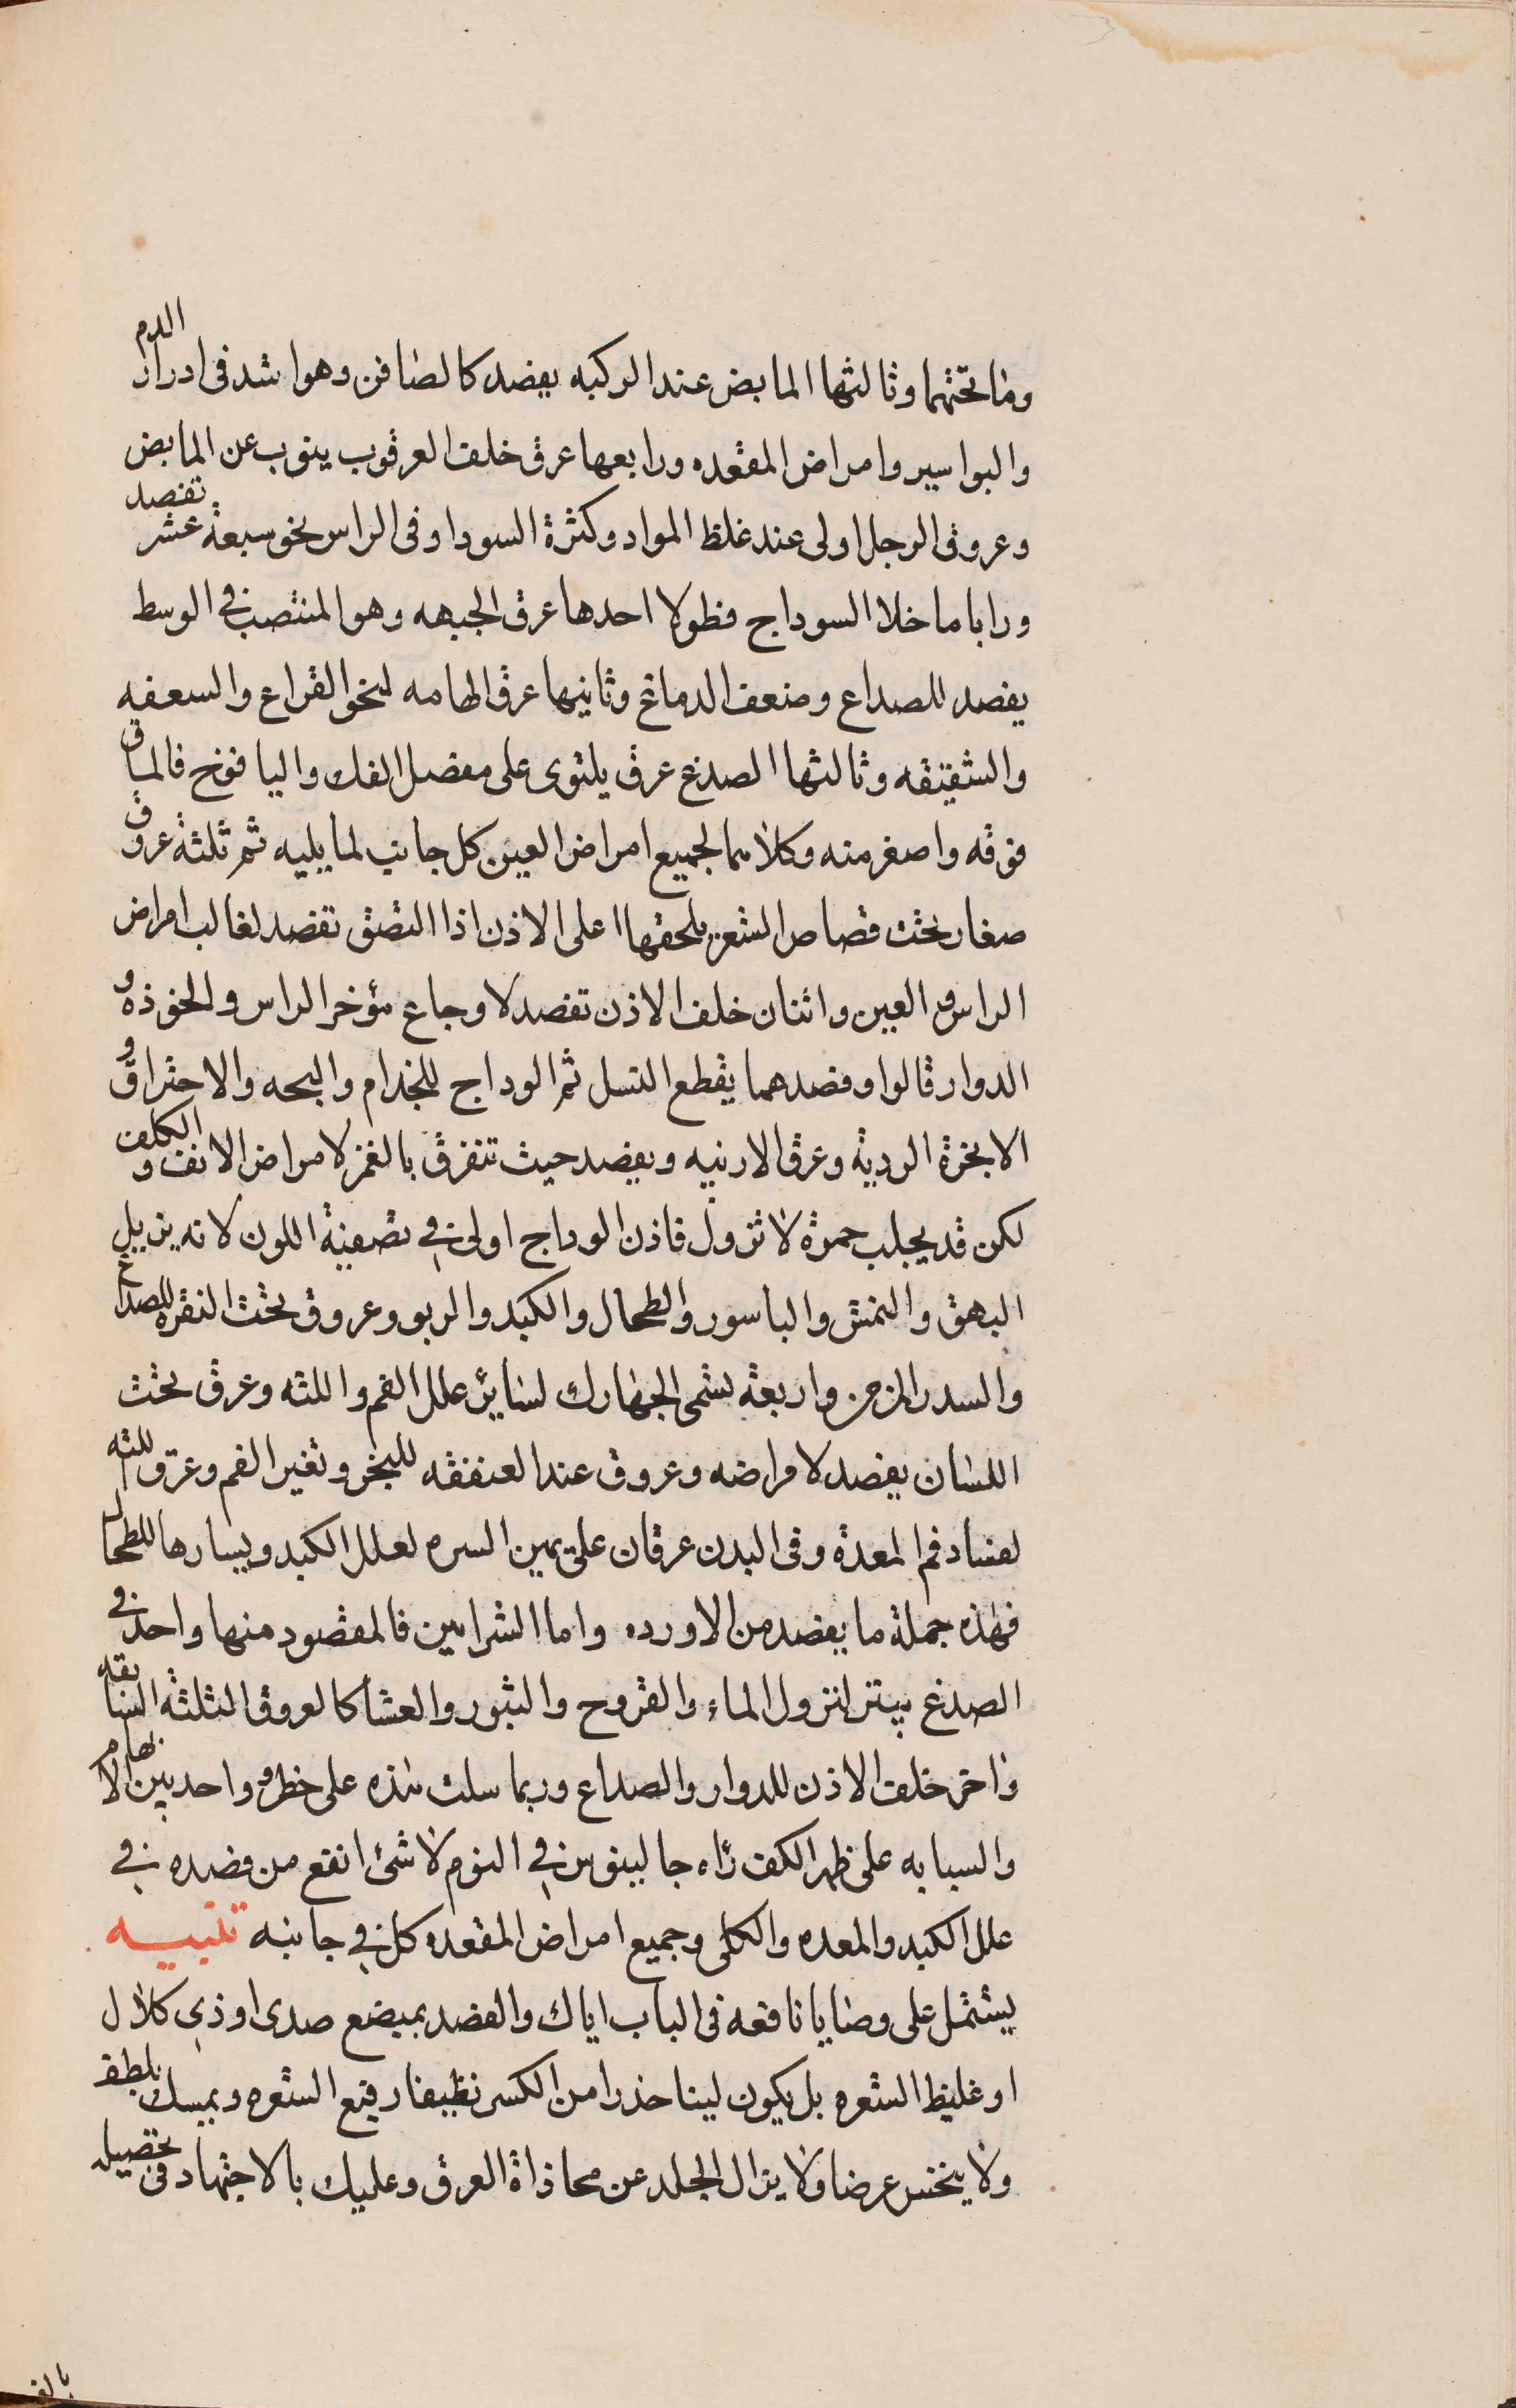 وما تحتهما وثالثها المابض عند الركبه يفصد كالصافن وهو اشد فى ادرار الدم
والبواسير وامراض المقعده ورابعها عرق خلف العرقوب ينوب عن المابض
وعروق الرجل اولى عند غلظ المواد وكثرة السودا وفى الراس نحو سبعة عشر تفصد
ورابا ما خلا السوداج فطولا احدها عرق الجبهه وهو المنتصب فى الوسط
يفصد للصداع وضعف الدماغ وثانيها عرق الهامه لنحو القراع والسعفه
والشقيقه وثالثها الصدغ عرق يلتوى على مفصل الفك واليافوخ فالماق
فوقه واصغر منه وكلاهما لجميع امراض العين كل جانب لما يليه ثم ثلثة عروق
صغار تحت قصاص الشعر يلحقها اعلى الاذن اذا التصق تفصد لغالب امراض
الراس والعين واثنان خلف الاذن تفصد لاوجاع مؤخر الراس والخوذه و
الدوار قالوا وفصدهما يقطع النسل ثم الوداج للجذام والبحه والاحتراق و
الابخرة الردية وعرق الارنبه ويفصد حيث تنفرق بالغمز لامراض الانف و الكلف
لكن قد يجلب حمرة لا تزول فاذن الوداج اولى فى تصفية اللون لانه يزيل
البهق والنمش والباسور والطحال والكبد والربو وعروق تحت النقره للصداع
والسدر المزمن واربعة تسمى الجهارك لسائر علل الفم واللثه وعرق تحت
اللسان يفصد لامراضه وعروق عند العنفقه للبخر وتغير الفم وعرق اللثه
لفساد فم المعدة وفى البدن عرقان على يمين السره لعلل الكبد ويسارها للطحال
فهذه جملة ما يفصد من الاورده واما الشرايين فالمقصود منها واحد فى
الصدغ يبتر لنزول الماء والقروح والبثور والعشا كالعروق الثلثة السابقه
واخر خلف الاذن للدوار والصداع وربما سلت هذه على خطر وواحد بين الابهام
والسبابه على ظهر الكف راه جالينوس فى النوم لا شئ انفع من فصده فى
علل الكبد والمعده والكلى وجميع امراض المقعده كل فى جانبه تنبيه
يشتمل على وصايا نافعه فى الباب اياك والفصد بمبضع صدى او ذى كلال
او غليظ الشعره بل يكون لينا حذرا من الكسر نظيفا رفيع الشعره ويمسك بلطف
ولا ينخس عرضا ولا يزال الجلد عن محاذاة العرق وعليك بالاجتهاد فى تحصيل